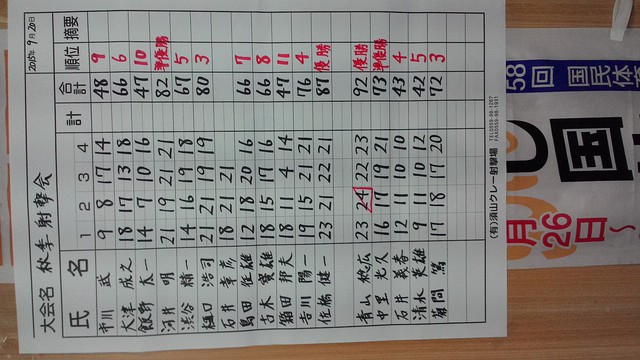 2015年9月20日
大会名 秋季射撃会
氏名 1 2 3 4 計 合計 順位 摘要
市川 武 9 8 17 14 48 9
大津 成之 18 17 13 18 66 6
飯野 太一 14 7 10 16 47 10
河井 明 21 19 21 21 82 準優勝
渋谷 精一 14 16 19 18 67 5
樋口 浩司 21 21 19 19 80 3
石井 幸彦 18 21 21
島田 征雄 12 18 20 16 66 7
古木 實雄 18 15 17 16 66 8
箱田 邦夫 18 11 4 14 47 11
吉川 陽一 19 15 21 21 76 4
佐橋 健一 23 21 22 21 87 優勝
青山 23 24 22 23 92 優勝
中里 光久 16 17 19 21 73 準優勝
石井 義春 12 11 10 10 43 4
清水 英雄 9 11 10 12 42 5
菊間 篤 17 18 17 20 72 3
(有)須山クレー射撃場
58回 国民体
国
月26日～